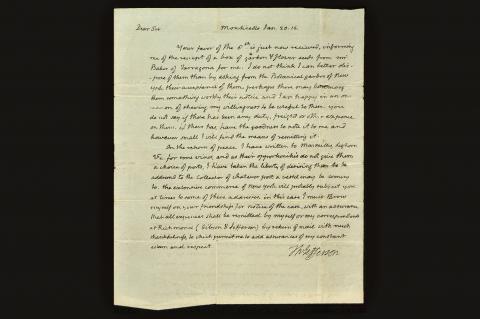 Dear Sir Monticello Jan. 20. 16.
Your favor of the 6th is just now recieved, informing
me of the reciept of a box of garden & flower seeds from mr
Baker of Tarragona for me. I do not think I can better dis-
-pose of them than by asking from the Botanical garden of New
York their acceptance of them. perhaps there may be among
them something worthy their notice, and I am happy in an oc-
-casion of shewing my willingness to be useful to them. you
do not say if there has been any duty, freight or other expence
on them. if there has, have the goodness to note it to me and
however small I will find the means of remitting it.
On the reason of peace I have written to Marseilles, Leghorn
&c. for some wines, and as their opportunities do not give them
a choice of ports, I have taken the liberty of desiring them to be
addressed to the Collector of whatever port a vessel may be coming
to. the extensive commerce of New York will probably subject you
at times to some of these addresses. in this case I must throw
myself on your friendship for notice of the case, with an assurance
that all expences shall be remitted by myself or my correspondent
at Richmond (Gibson & Jefferson) by return of mail with much
thankfulness, to which permit me to add assurances of my constant
esteem and respect
Th: Jefferson